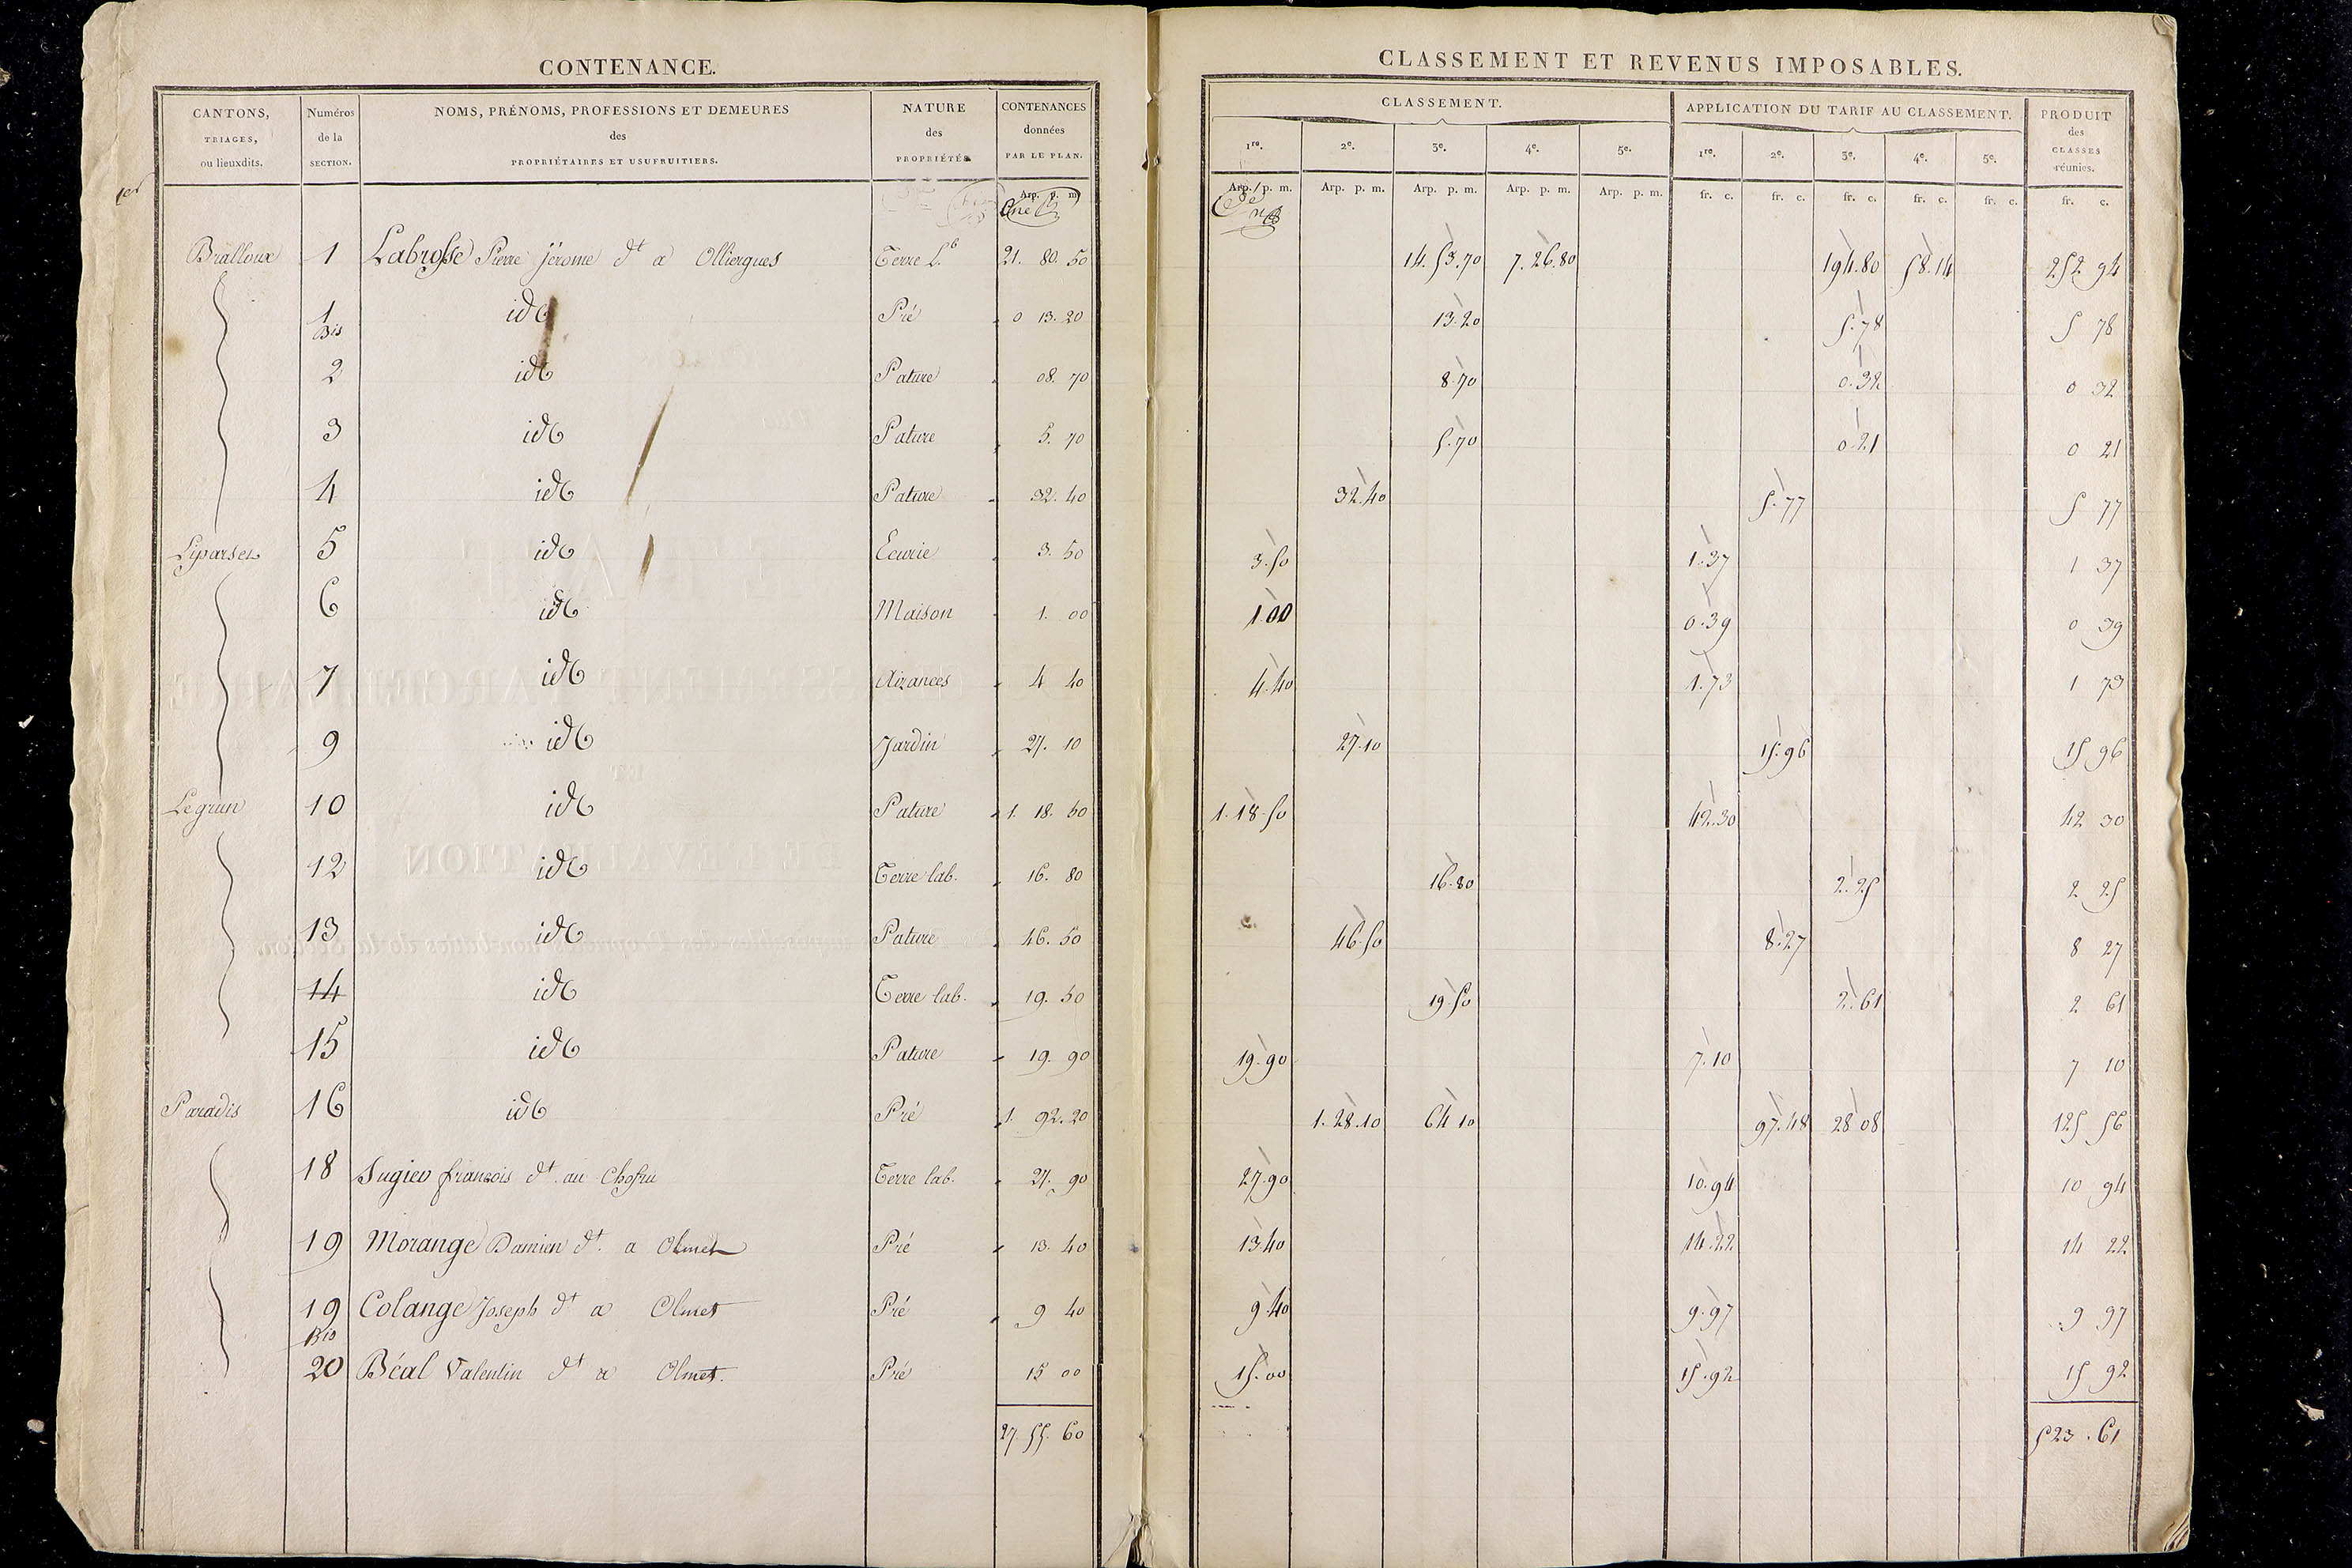 CONTENANCE.
CLASSEMENT ET REVENUS IMPOSABLES.
CANTONS, TRIAGES, ou lieuxdits. Numéros de la SECTION. NOMS, PRÉNOMS, PROFESSIONS ET DEMEURES des PROPRIÉTAIRES ET USUFRUITIERS. NATURE des PROPRIÉTÉS CONTENANCES données PAR LE PLAN. CLASSEMENT. 1re. 2e. 3e. 4e. 5e. APPLICATION DU TARIF AU CLASSEMENT. 1re. 2e. 3e. 4e. 5e. PRODUIT des CLASSES réunies.
Arp. p. m. Arp. p. m. Arp. p. m. Arp. p. m. Arp. p. m. Arp. p. m. fr. c. fr. c. fr. c. fr. c. fr. c. fr. c.
Bralloux 1 Labrosse Pierre Jérome dt a Olliergues Terre l.b 21. 80. 50 14. 53. 70 7. 26. 80 194. 80 58. 14 252 94
1 Bis id Pré 0 13. 20 13. 20 5. 78 5 78
2 id Pature 08. 70 8. 70 0. 32 0 32
3 id Pature 5. 70 5. 70 0. 21 0 21
4 id Pature 32. 40 32. 40 5. 77 5 77
Liparses 5 id Ecurie 3. 50 3. 50 1. 37 1 37
6 id Maison 1. 00 1. 00 0. 39 0 39
7 id Aizances 4 40 4. 40 1. 73 1 73
9 id Jardin 27. 10 27. 10 15. 96 15 96
Legrun 10 id Pature 1. 18. 50 1. 18. 50 42. 30 42 30
12 id Terre lab. 16. 80 16. 80 2. 25 2 25
13 id Pature 46. 50 46. 50 8. 27 8 27
14 id Terre lab. 19. 50 19. 50 2. 61 2 61
15 id Pature 19. 90 19. 90 7. 10 7 10
Paradis 16 id Pré 1. 92. 20 1. 28. 10 64 10 97. 48 28 08 125 56
18 françois dt. au Terre lab. 27. 90 27. 90 10. 94 10 94
19 Morange Damien dt. a Olmet Pré 13. 40 13. 40 14. 22 14 22
19 Bis Colange Joseph dt a Olmet Pré 9 40 9. 40 9. 97 9 97
20 Béal Valentin dt a Olmet. Pré 15 00 15. 00 15. 92 15 92
27. 55. 60 523. 61